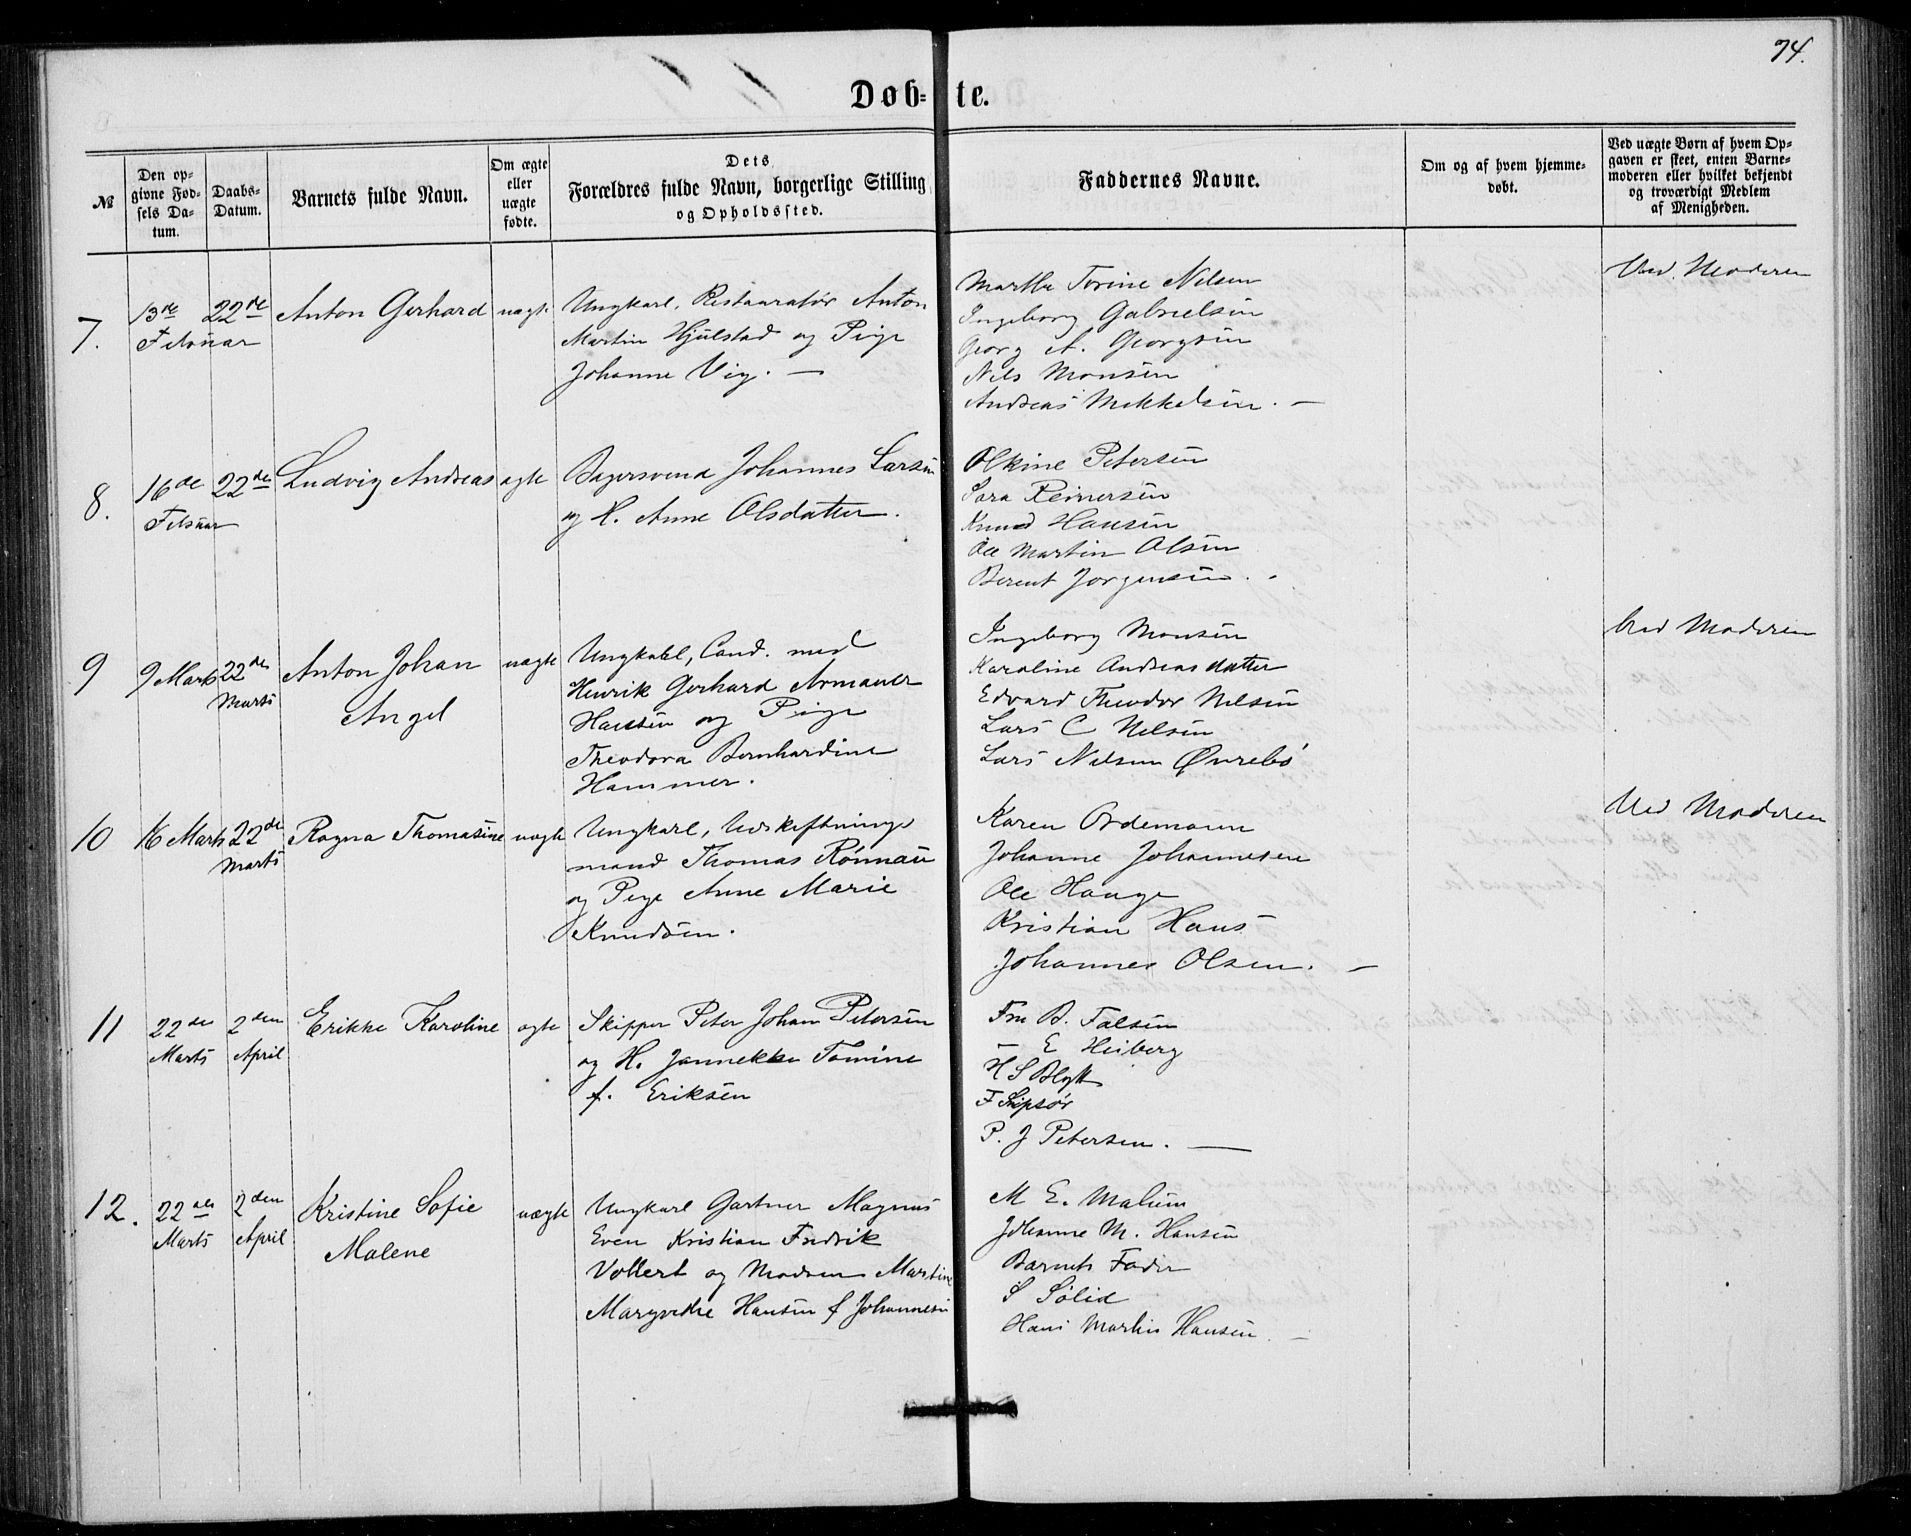 74.
Døb-te.
№
Den op-
givne Fød-
sels Da-
tum.
Daabs-
Datum.
Barnets fulde Navn.
Om ægte
eller
uægte
fødte.
Dets
Forældres fulde Navn, borgerlige Stilling
og Opholdssted.
Faddernes Navne.
Om og af hvem hjemme-
døbt.
Ved uægte Børn af hvem Op-
gaven er skeet, enten Barne-
moderen eller hvilket bekjendt
og troværdigt Medlem
af Menigheden.
7.
13de
Februar
22de
Anton Gerhard
uægte
Ungkarl, Restauratør Anton
Martin Hjulstad og Pige
Johanne Vig. —
Martha Torine Nilsen
Ingeborg Gabrielsen
Georg A. Georgsen
Nils Monsen
Andreas Mikkelsen. —
Ved Moderen
8.
16de
Februar
22de
Ludvig Andreas
ægte
Bagersvend Johannes Larsen
og H. Anne Olsdatter.
Olkine Petersen
Sara Reinersen
Knud Hansen
Ole Martin Olsen
Berent Jørgensen.
9
9 Marts
22de
Marts
Anton Johan
Angel
uægte
Ungkarl, Cand. med
Henrik Gerhard Armauer
Hansen og Pige
Theodora Bernhardine
Hammer.
Ingeborg Monsen
Karoline Andreasdatter
Edvard Theodor Nilsen
Lars C Nilsen
Lars Nilsen Øvrebø
Ved Moderen
10
16 Marts
22de
Marts
Ragna Thomasine
uægte
Ungkarl, Udskiftnings
mand Thomas Rønnau
og Pige Anne Marie
Knudsen.
Karen Ordemann
Johanne Johannesen
Ole Hauge
Kristian Haus
Johannes Olsen. —
Ved Moderen
11
22de
Marts
2den
April
Erikke Karoline
ægte
Skipper Peter Johan Petersen
og H. Jannekke Tomine
f. Eriksen
Fru B. Falsen
— E Heiberg
H S Blytt
F
P. J Petersen. —
12.
22de
Marts
2den
April
Kristine Sofie
Malene
uægte
Ungkarl Gartner Magnus
Even Kristian Fredrik
Vollert og Madsen Martine
Margrethe Hansen f Johannesen
M E. Malum
Johanne M. Hansen
Barnets Fader
S Solid
Hans Martin Hansen. —